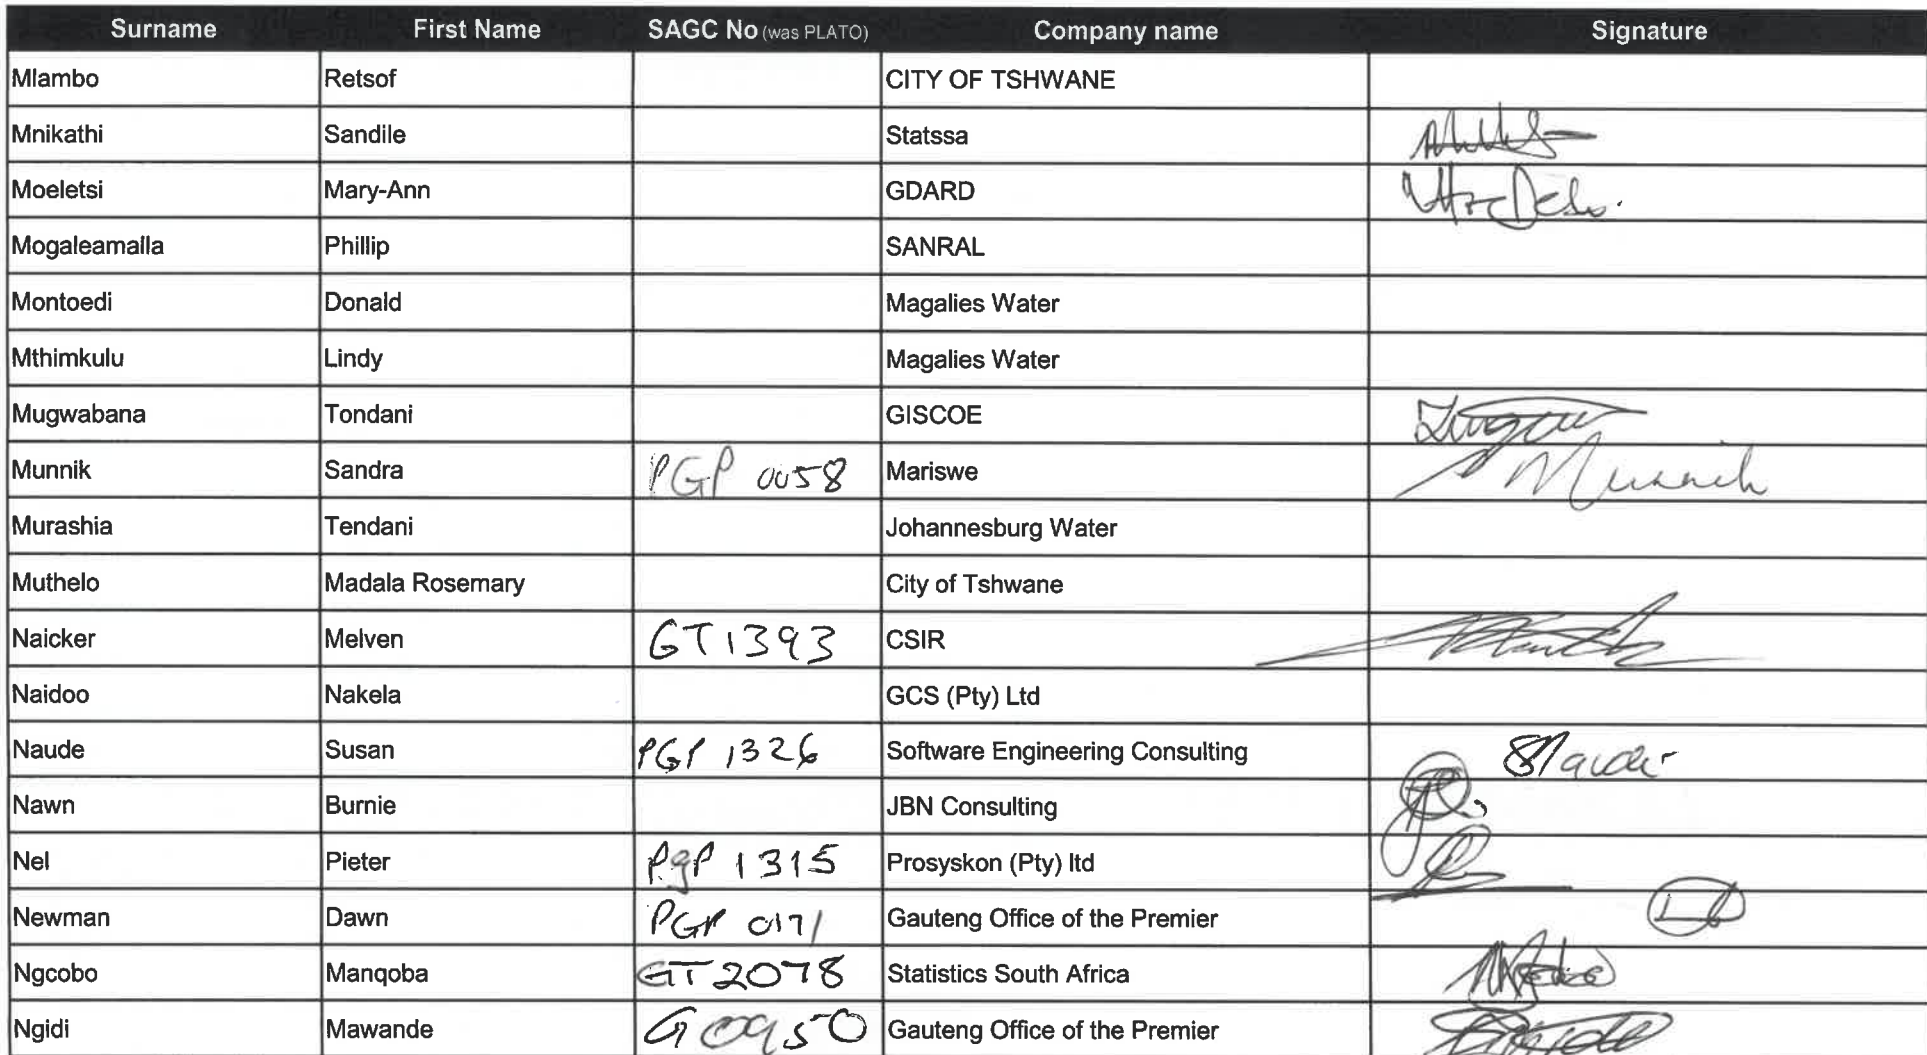 Surname First Name SAGC No (was PLATO) Company name Signature
Mlambo Retsof CITY OF TSHWANE
Mnikathi Sandile Statssa
Moeletsi Mary-Ann GDARD
Mogaleamalla Phillip SANRAL
Montoedi Donald Magalies Water
Mthimkulu Lindy Magalies Water
Mugwabana Tondani GISCOE
Munnik Sandra PGP 0058 Mariswe Munnik
Murashia Tendani Johannesburg Water
Muthelo Madala Rosemary City of Tshwane
Naicker Melven GT1393 CSIR
Naidoo Nakela GCS (Pty) Ltd
Naude Susan PGP 1326 Software Engineering Consulting SNaude
Nawn Burnie JBN Consulting
Nel Pieter PgP 1315 Prosyskon (Pty) ltd
Newman Dawn PGP 0171 Gauteng Office of the Premier
Ngcobo Manqoba GT2078 Statistics South Africa
Ngidi Mawande G0950 Gauteng Office of the Premier